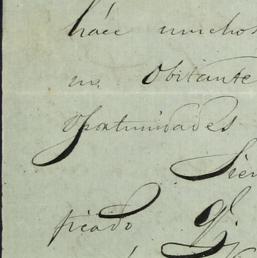 háce muchos
no Obstante
Oportunidades
Sien
ficado